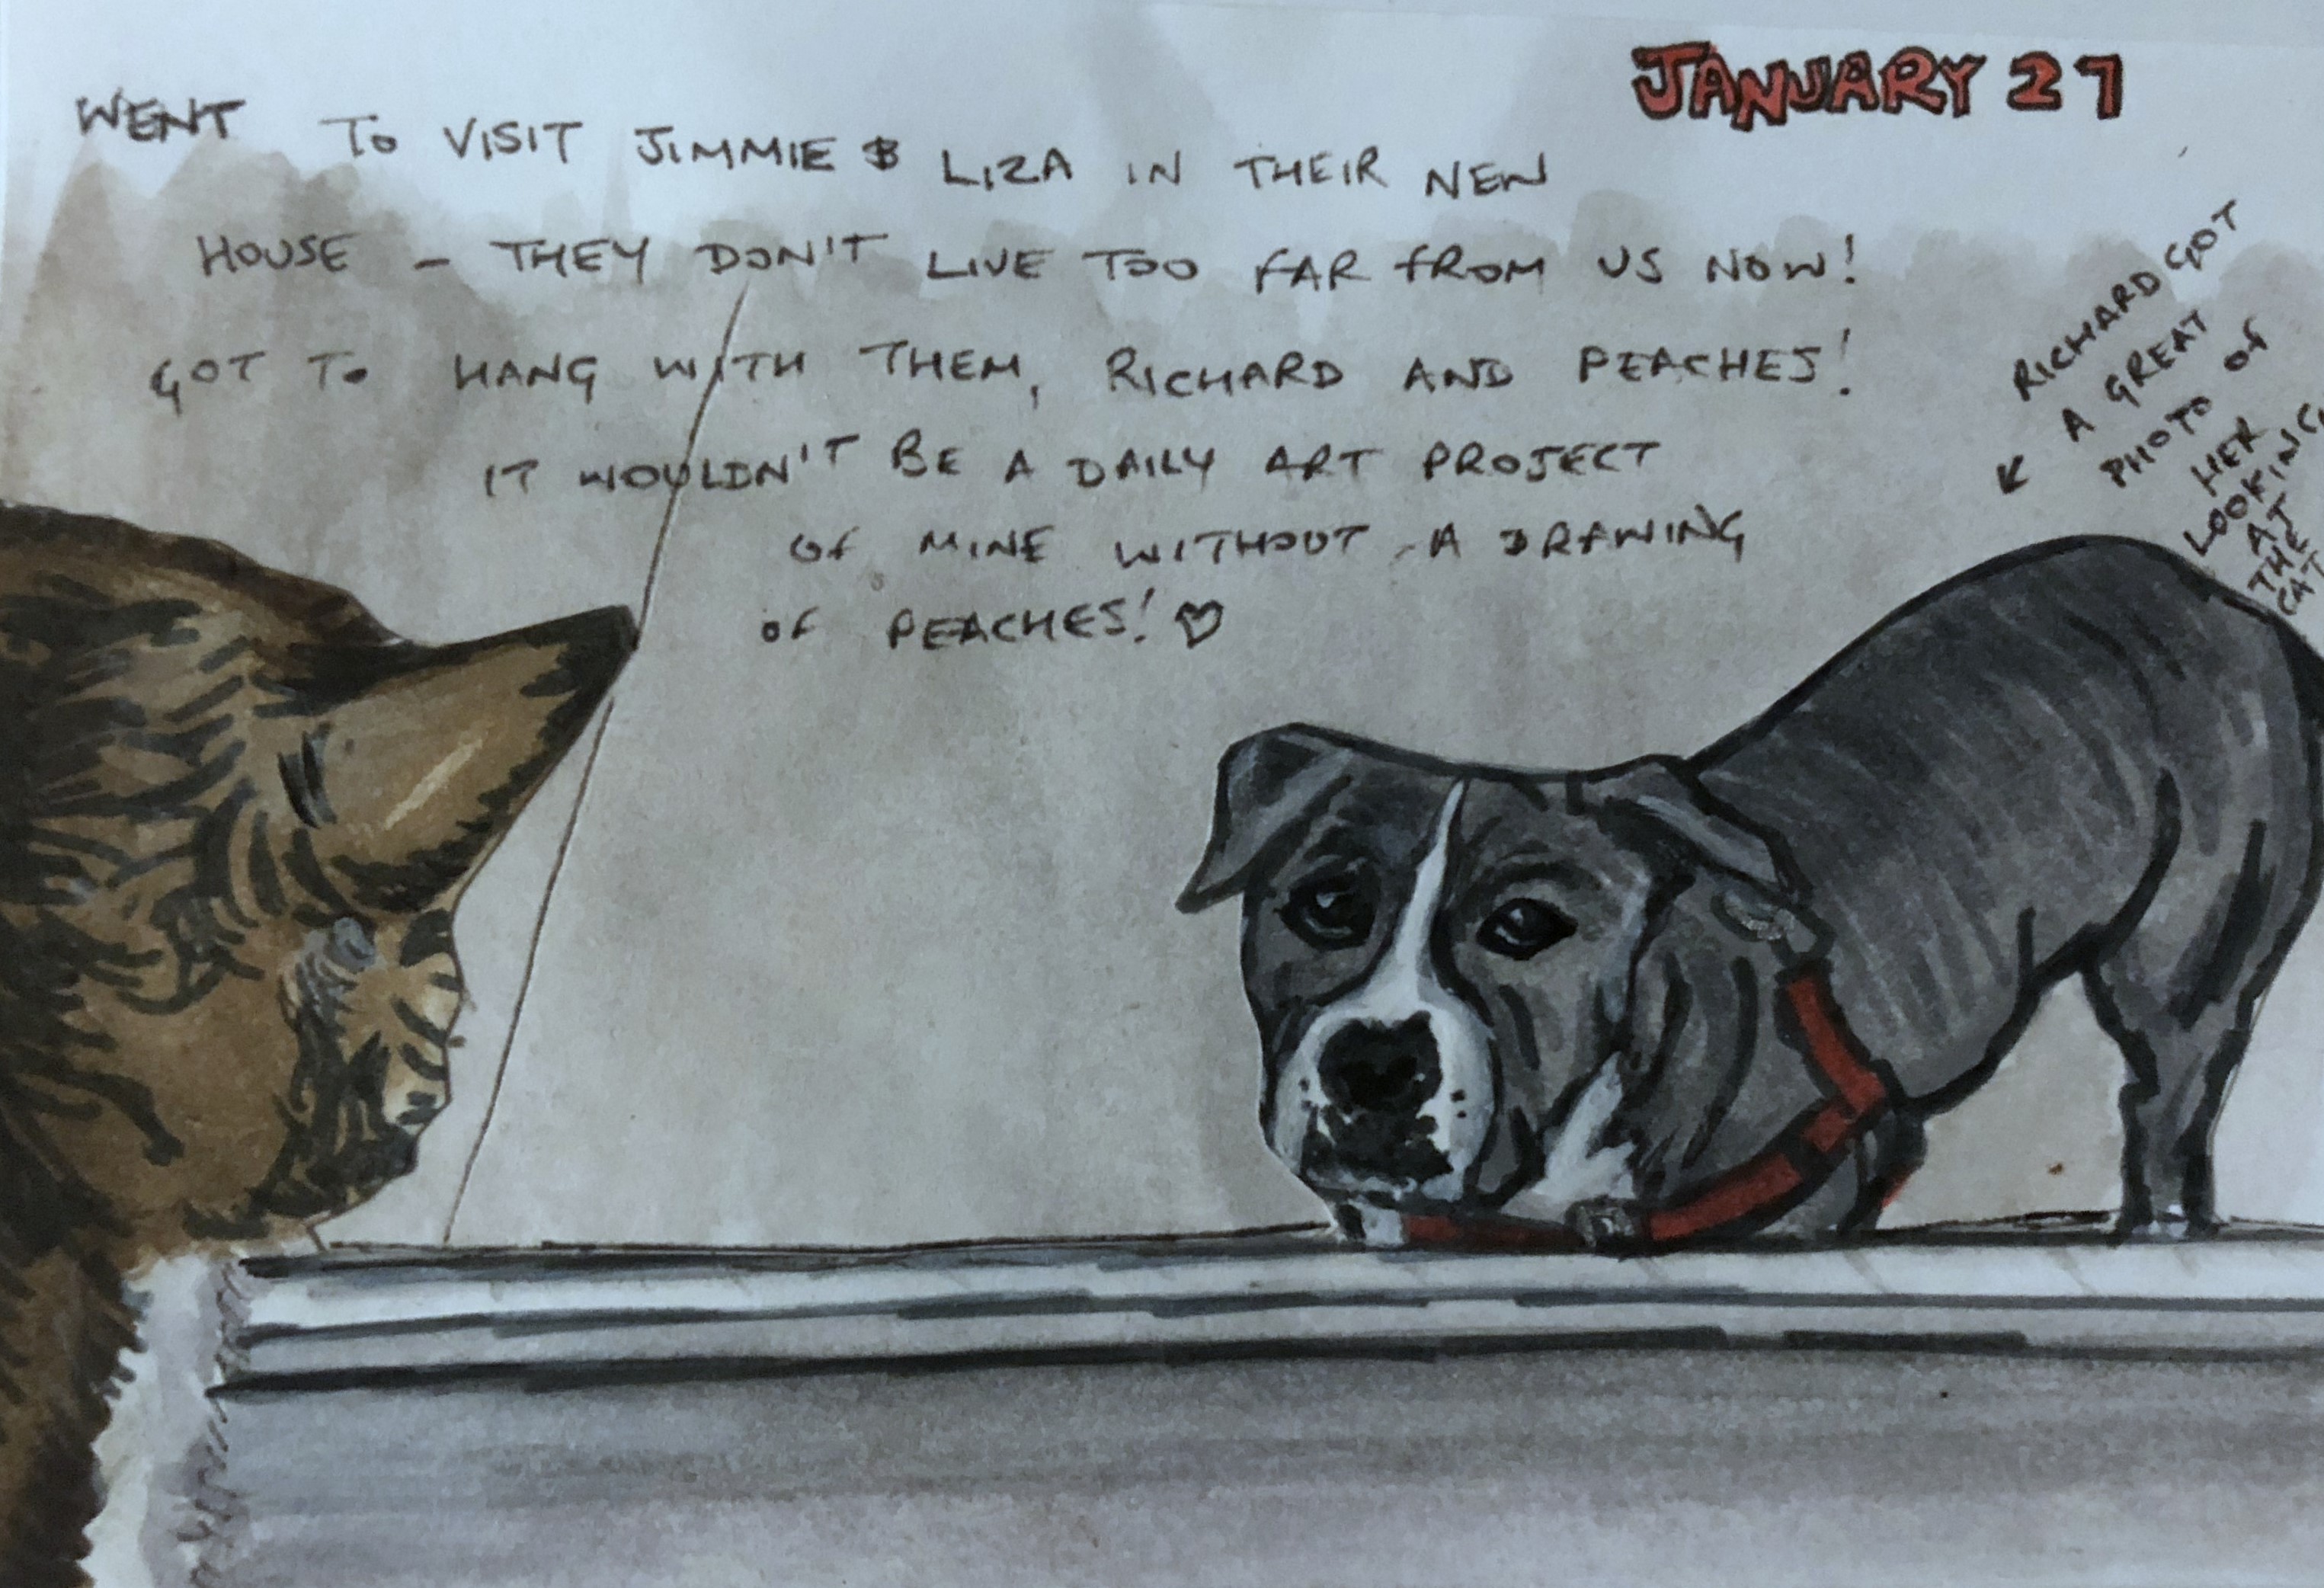 JANUARY 27
WENT TO VISIT JIMMIE & LIZA IN THEIR NEW
HOUSE - THEY DON'T LIVE TOO FAR FROM US NOW!
GOT TO HANG WITH THEM, RICHARD AND PEACHES!
IT WOULDN'T BE A DAILY ART PROJECT
OF MINE WITHOUT A DRAWING
OF PEACHES! ♡
RICHARD GOT
A GREAT
PHOTO OF
HER
LOOKING
AT
THE
CAT